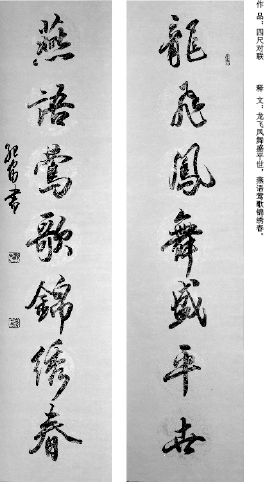 作品：四尺对联
释文：龙飞凤舞盛平世，燕语莺歌锦绣春。
龍飛鳳舞盛平世
燕語鶯歌錦綉春